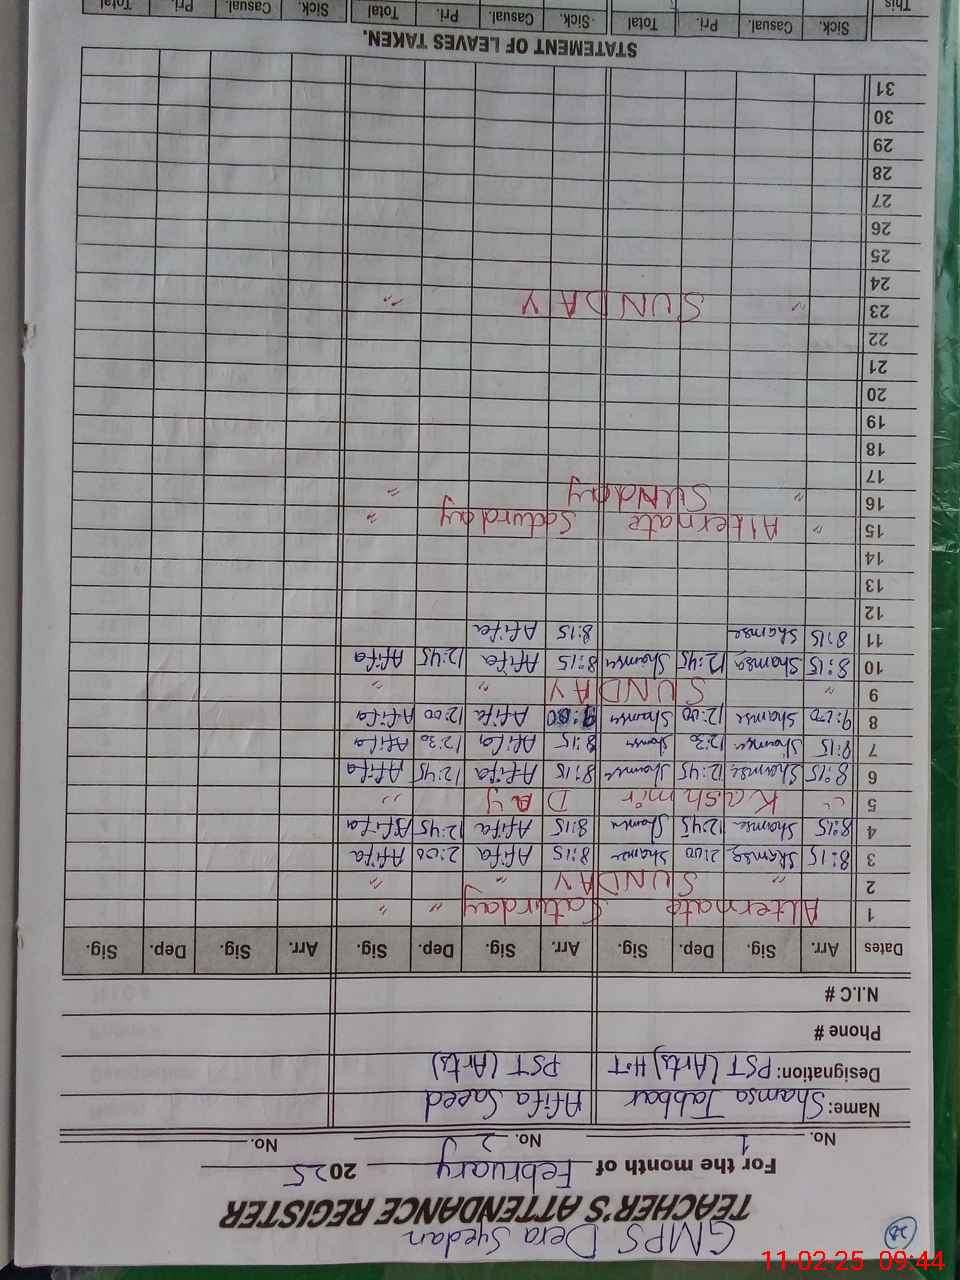 28
GMPS Dera Syedan
TEACHER'S ATTENDANCE REGISTER
For the month of February 2025
No. 1 No. 2 No.
Name: Shamsa Jabbar Afifa Saeed
Designation: PST (Arts) H.T PST (Arts)
Phone #
N.I.C #
Dates Arr. Sig. Dep. Sig. Arr. Sig. Dep. Sig. Arr. Sig. Dep. Sig.
1 Alternate Saturday " "
2 " SUNDAY " "
3 8:15 Shamsa 2:00 Shamse 8:15 Afifa 2:00 Afifa
4 8:15 Shamse 12:45 Shamse 8:15 Afifa 12:45 Afifa
5 " Kashmir DAY "
6 8:15 Shamse 12:45 Shamse 8:15 Afifa 12:45 Afifa
7 8:15 Shamse 12:30 Shamse 8:15 Afifa 12:30 Afifa
8 9:00 Shamse 12:00 Shamse 9:00 Afifa 12:00 Afifa
9 " SUNDAY " "
10 8:15 Shamsa 12:45 Shamse 8:15 Afifa 12:45 Afifa
11 8:15 Shamse 8:15 Afifa
12
13
14
15 " Alternate Saturday "
16 " SUNday "
17
18
19
20
21
22
23 " SUNDAY "
24
25
26
27
28
29
30
31
STATEMENT OF LEAVES TAKEN.
Sick. Casual. Pri. Total Sick. Casual. Pri. Total Sick. Casual. Pri. Total
This
11-02-25 09:44